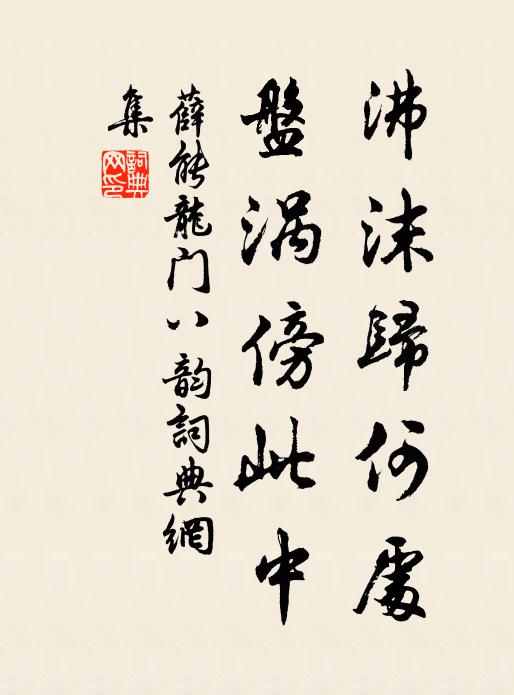 沸沫歸何處
盤涡傍此中
薛能龍门八韵詞典網
集
詞典網印